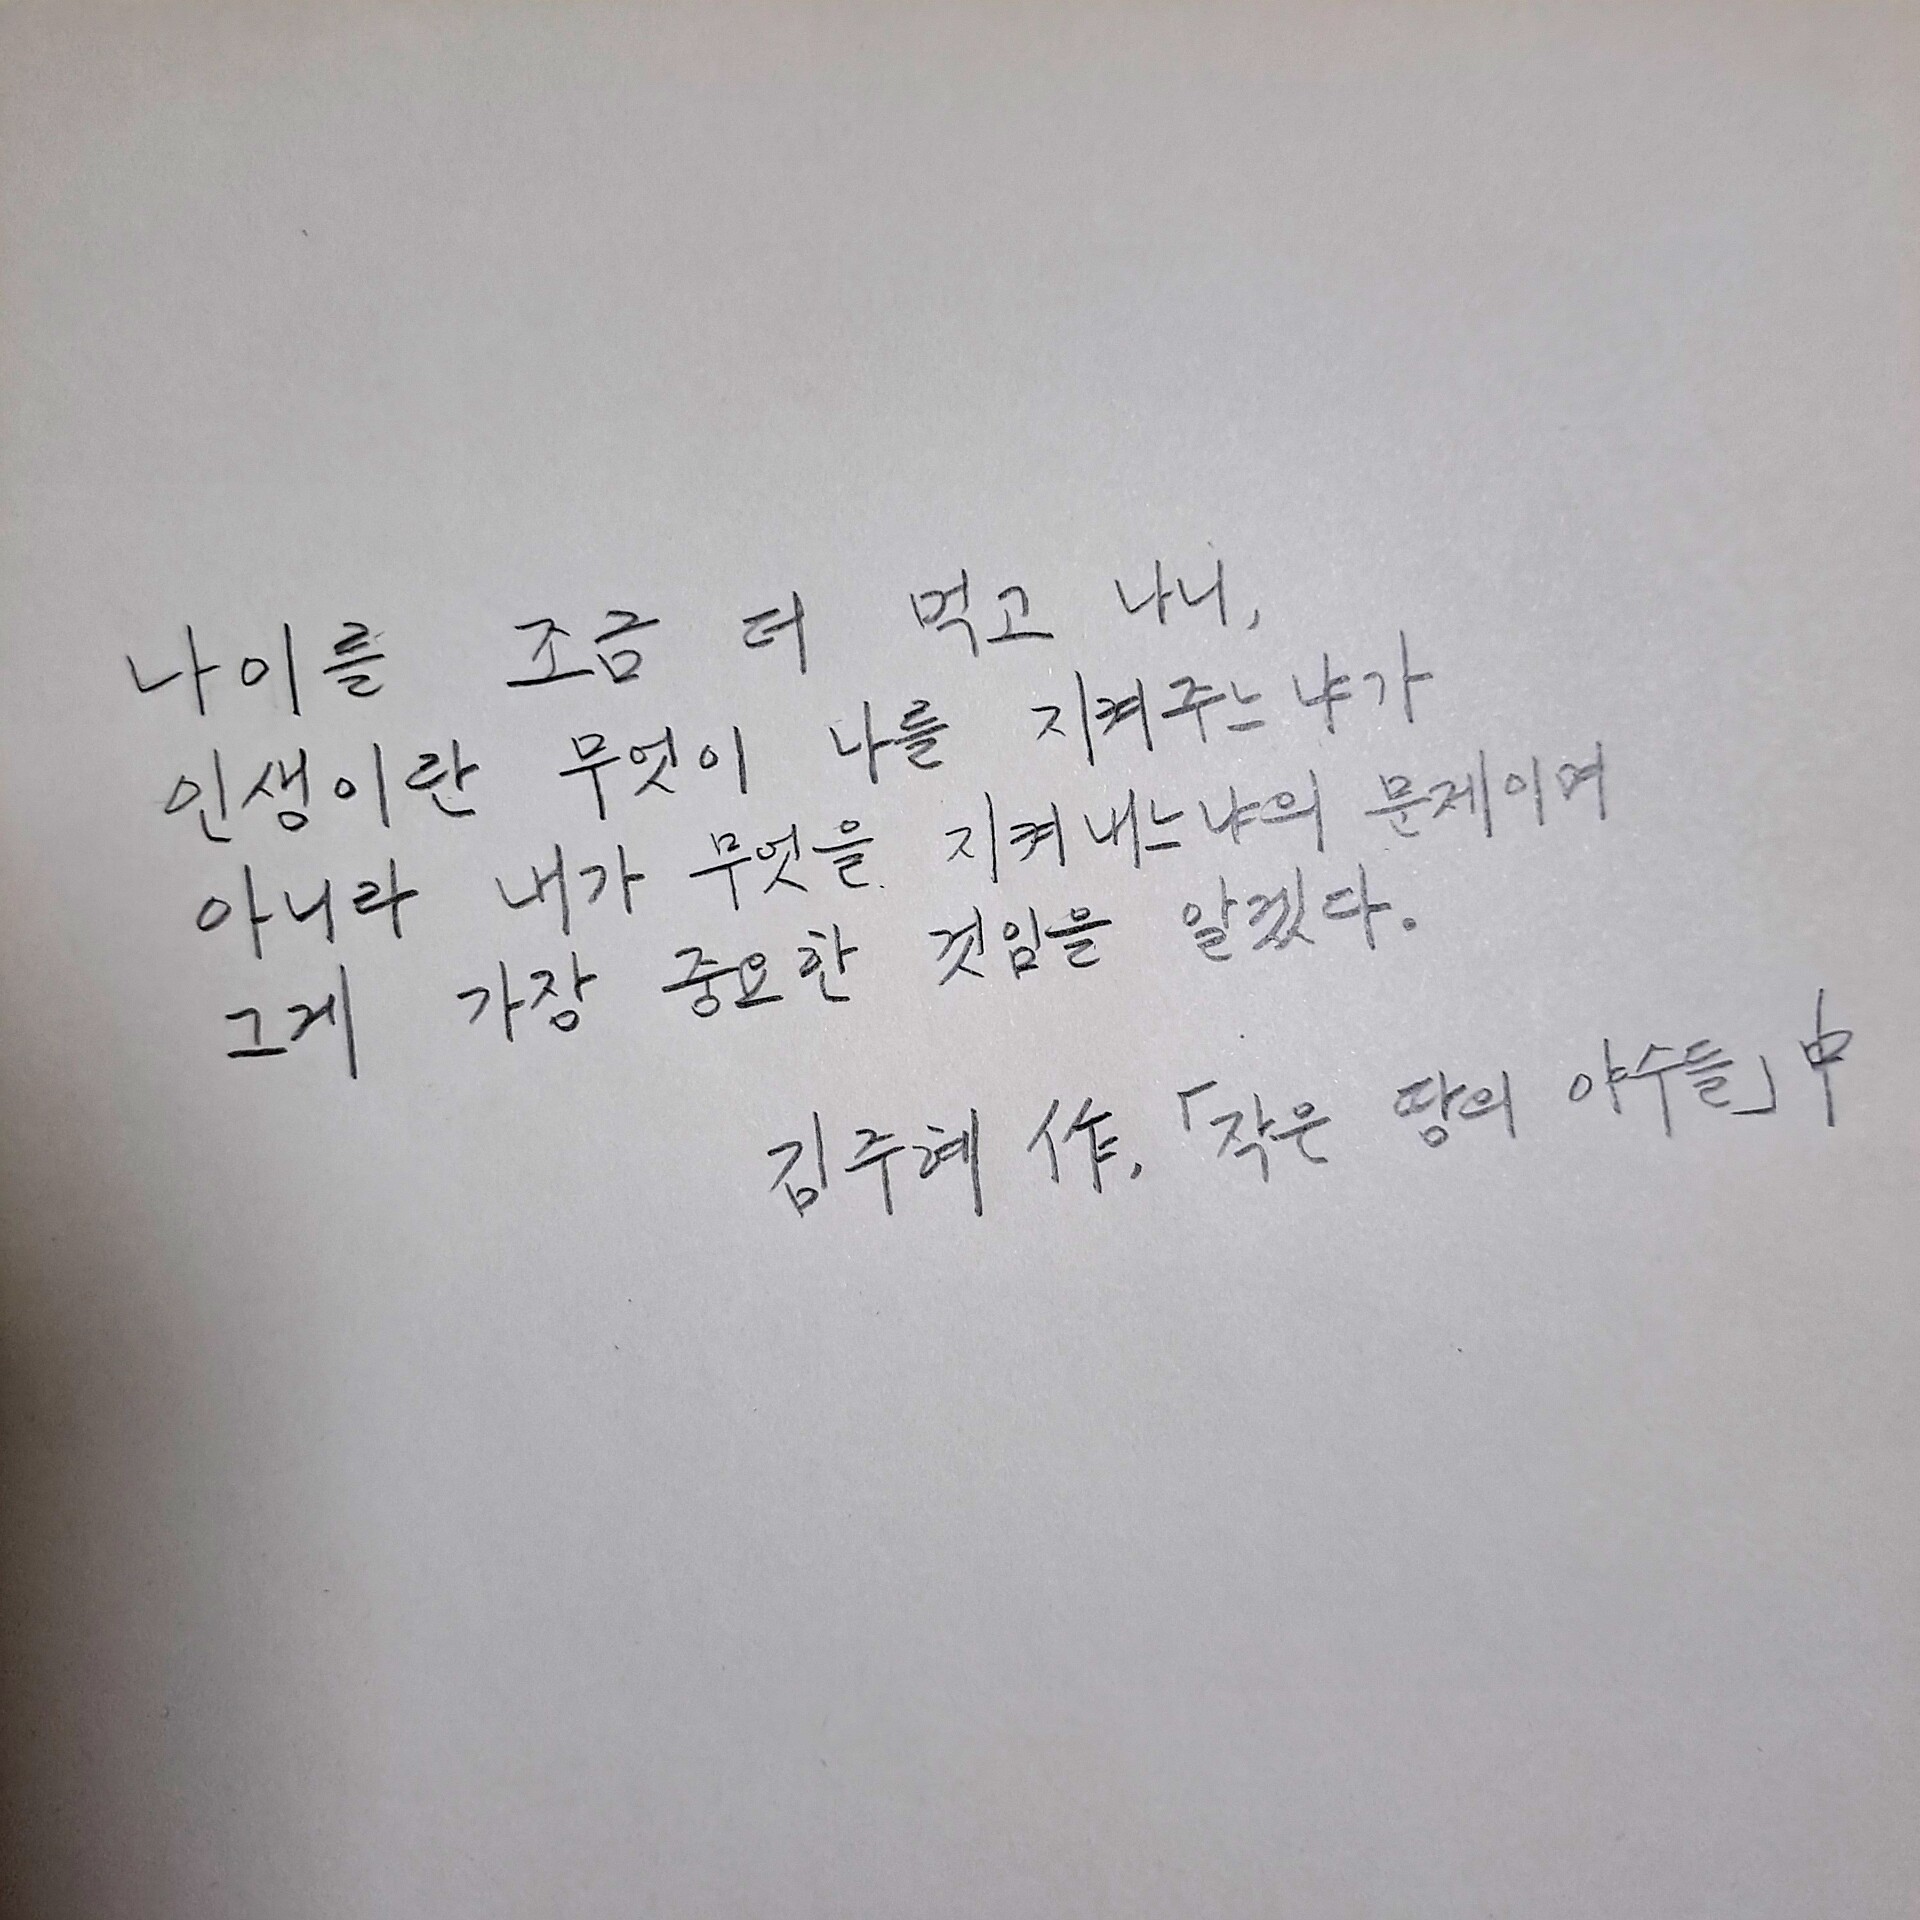 나이를 조금 더 먹고 나니,
인생이란 무엇이 나를 지켜주느냐가
아니라 내가 무엇을 지켜내느냐의 문제이며
그게 가장 중요한 것임을 알겠다.
김주혜 作, 「작은 땅의 야수들」 中